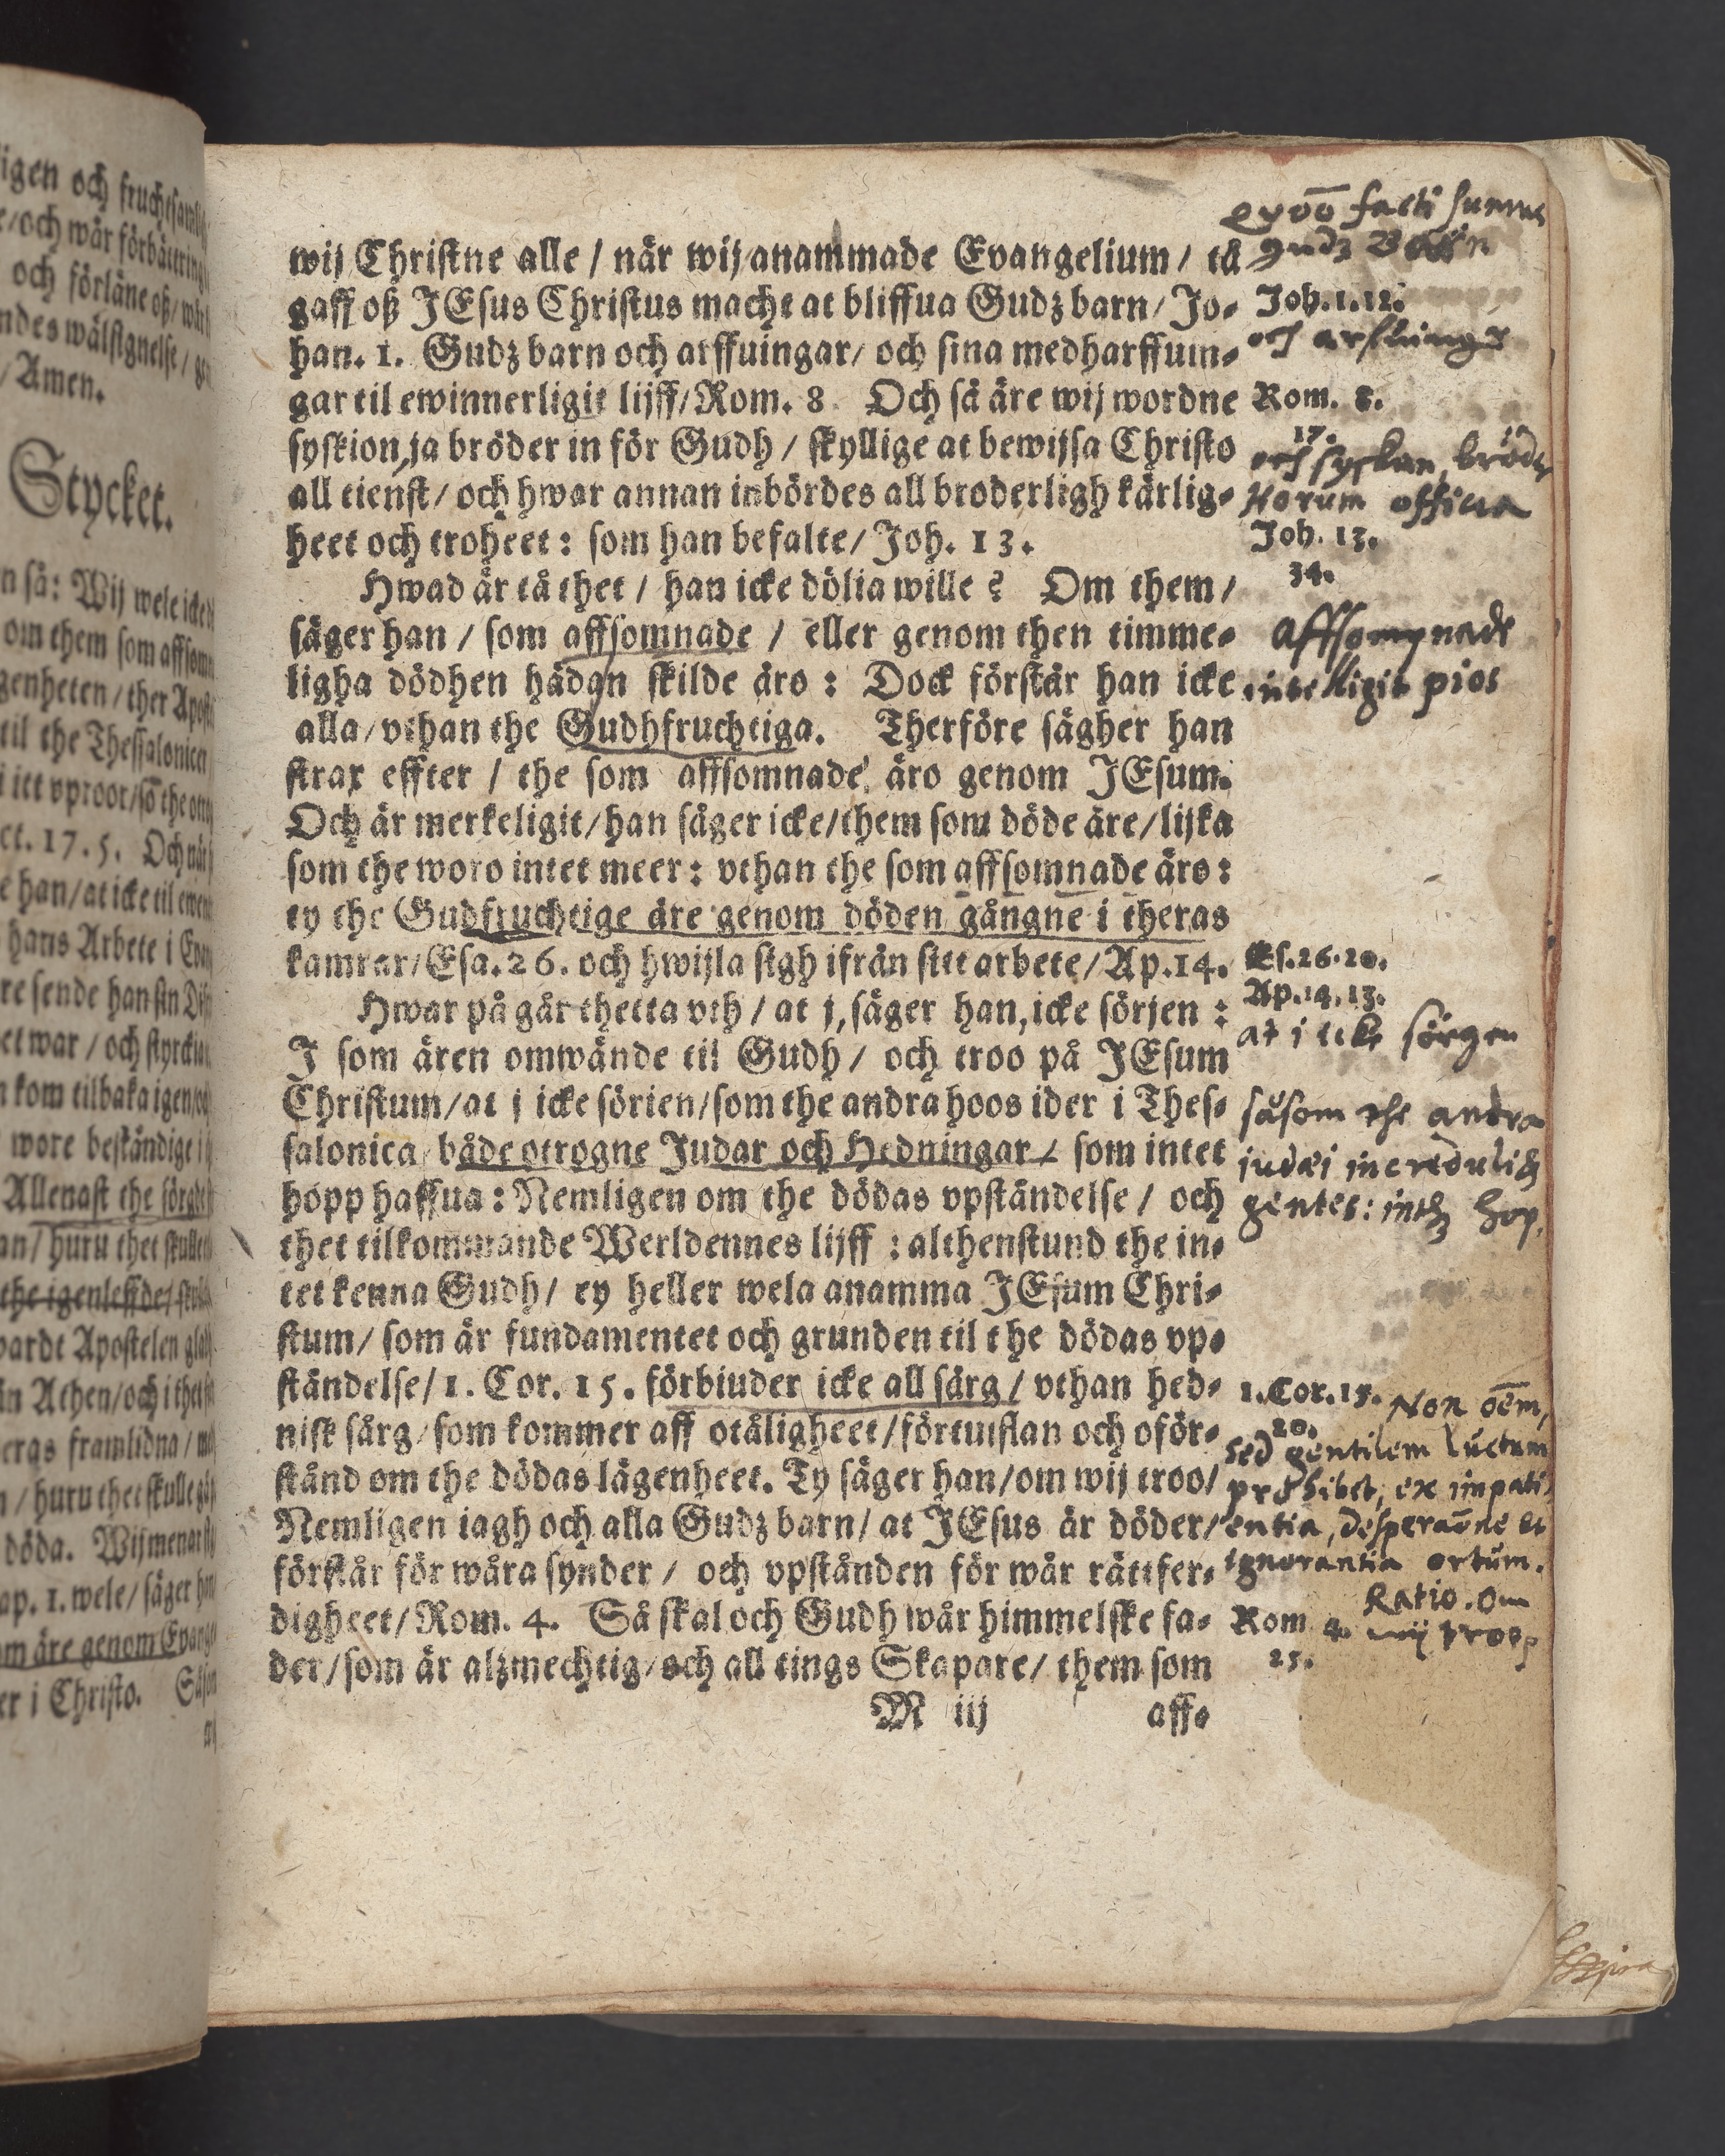 igen och fruchtsam
/och wår förbättring
och förläne oß/
ndes wälsignelse/
/Amen.
Stycket.
n så: Wij wele icke
om them som affsom
genheten/ther Apost
til the Thessalonicer
i itt vproor/sō the
ct. 17. 5. Och
e han/at icke til
hans Arbete i Evan
re sende han sin
et war / och styrckia
n kom tilbaka igen/
wore beständige i
Allenast the sörgde
an/huru thet skulle
the igenleffde/
wardt Apostelen glad
in Athen/och i thet
ergs framlidna/
n/huru thet skulle gå
döda. Wij menar
ap. 1. wele/säger han
om äre genom Evange
er i Christo.
wij Christne alle / när wij anammade Evangelium / tå
gaff oß JEsus Christus macht at bliffua Gudz barn/Jo-
han. 1. Gudz barn och arffuingar/ och sina medharffuin-
gar til ewinnerligit lijff/Rom. 8 Och så äre wij wordne
syskion,ja bröder in för Gudh / skyllige at bewijsa Christo
all tienst/och hwar annan inbördes all broderligh kärlig-
heet och troheet: som han befalte/Joh. 13.
Hwad är tå thet / han icke dölia wille? Om them/
säger han / som affsomnade / eller genom then timme-
ligha dödhen hädan skilde äro: Dock förstår han icke
alla/vthan the Gudhfruchtiga. Therföre sägher han
strax effter / the som affsomnade äro genom JEsum.
Och är merkeligit/han säger icke/them som döde äre/lijka
som the woro intet meer: vthan the som affsomnade äro:
ty the Gudfruchtige äre genom döden gångne i theras
kamrar/Esa.26. och hwijla sigh ifrån sitt arbete/Ap.14.
Hwar på går thetta vth/ at j,säger han,icke sörjen:
J som ären omwände til Gudh/ och troo på JEsum
Christum/at j icke sörien/som the andra hoos ider i Thes-
salonica både otrogne Judar och Hedningar/ som intet
hopp haffua: Nemligen om the dödas vpståndelse/ och
thet tilkommande Werldennes lijff: althenstund the in-
tet kenna Gudh/ ey heller wela anamma JEsum Chri-
stum/ som är fundamentet och grunden til the dödas vp-
ståndelse/1. Cor. 15. förbiuder icke all sårg/ vthan hed-
nisk sårg/som kommer aff otåligheet/förtuiflan och oför-
stånd om the dödas lägenheet. Ty säger han/om wij troo/
Nemligen iagh och alla Gudz barn/at JEsus är döder/
förstår för wåra synder/ och vpstånden för wår rättfer-
digheet/Rom. 4. Så skal och Gudh wår himmelske fa-
der/som är alzmechtig/och all tings Skapare/ them som
M iij aff-
facti sumus
gudz
Joh.1.12.
och arfuingar
Rom. 8.
17.
och syskon, bröder
Horum officia
Joh. 13.
34.
affsomnade
intelligit pios
Es.26.20.
Ap.14.13.
at i icke sörgen
såsom the andra
judæi increduli &
gentes: hop.
1.Cor.15. Non oēm,
20.
sed gentilem luctum
prohibet, ex impati-
entia, desperaōne et
ignorantia ortum.
Ratio. Om
Rom 4. wij troo
25.